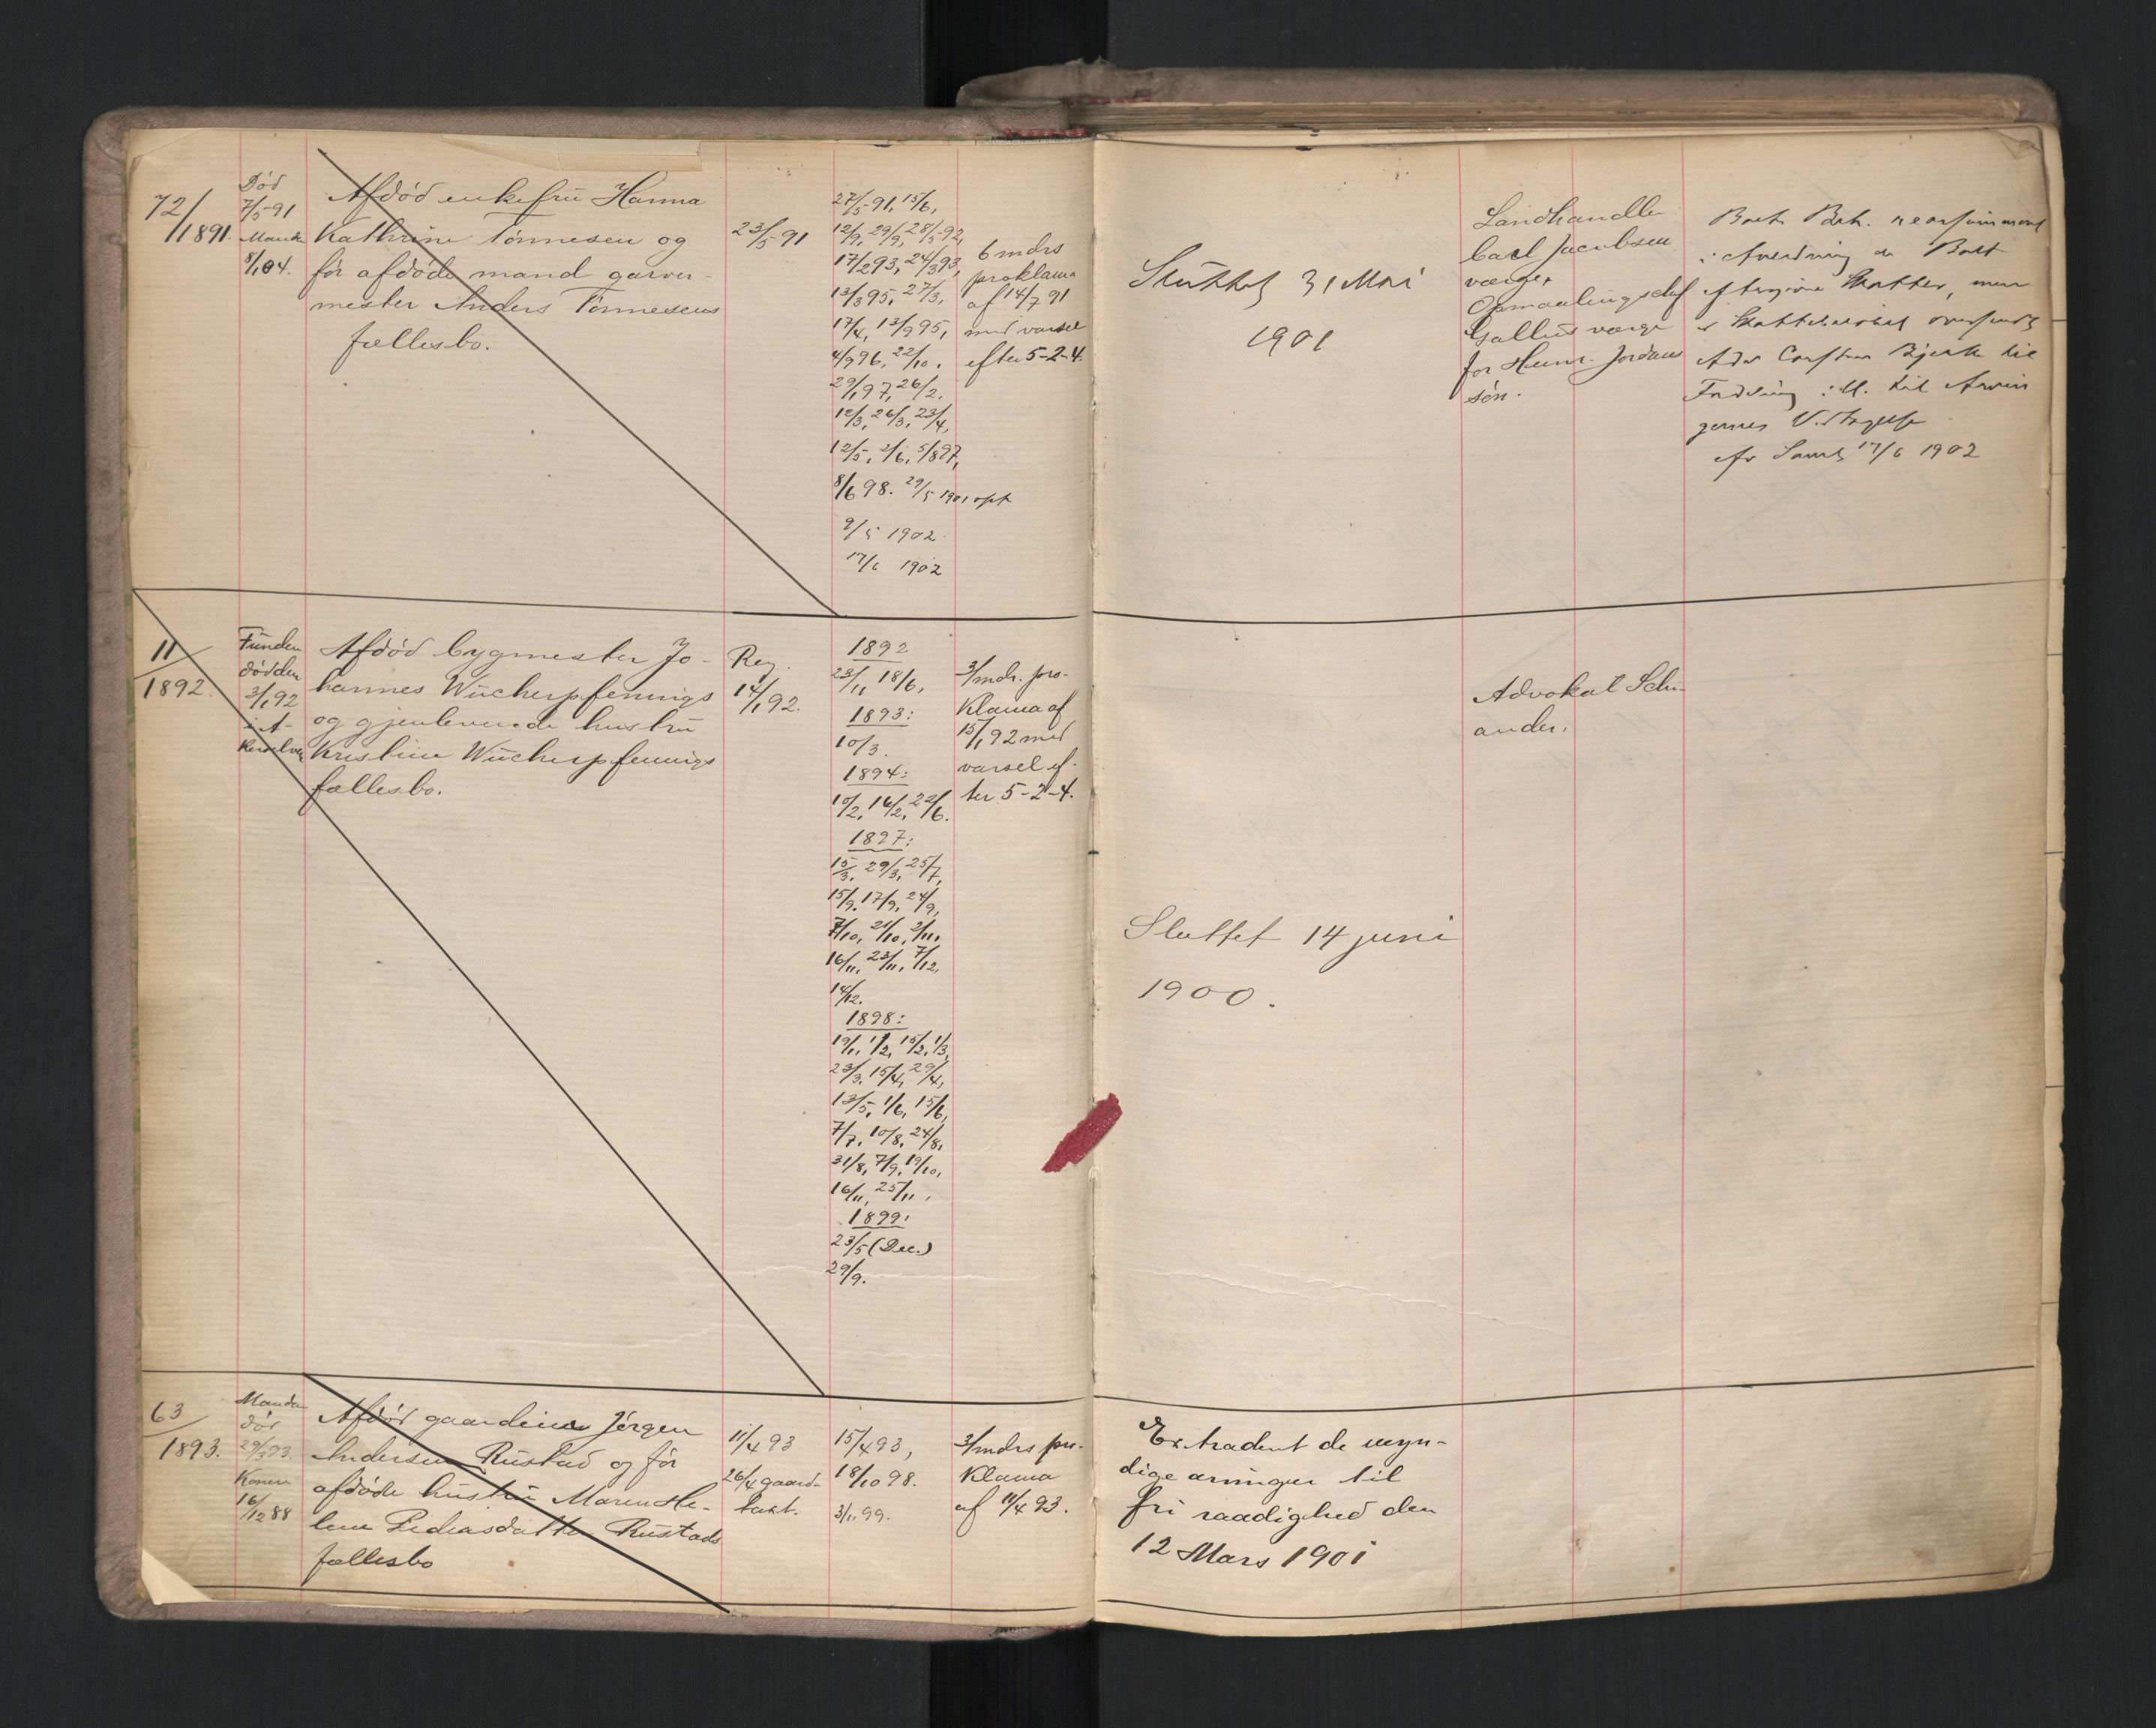 72/1891.
Död
7/5-91
Manden
8/1 84.
Afdöd enkefru Hanna
Kathrine Tönnesen og
för afdöde mand garver-
mester Anders Tönnesens
fællesbo.
23/5-91
27/5-91, 15/6,
12/9, 29/9, 28/5-92,
17/2 93, 24/3 93,
13/3 95, 27/3,
17/4, 13/9 95,
4/9 96, 22/10.
29/1 97, 26/2,
12/3, 26/3, 23/4,
12/5, 2/6, 5/8 97,
8/6 98. 29/5 1901 opt
9/5 1902
17/6 1902
6 mdrs
proklama
af 14/7 91
med varsel
efter 5-2-4.
Sluttet 31 Mai
1901
Landhandler
Carl Jacobsen
værge,
Opmaalingschef
Gallus værge
for Henr. Jordans
sön.
17/6 1902
11/1892.
Funden
död den
3/1 92
i A-
kerselven
Afdöd bygmester Jo-
hannes Wucherpfennigs
og gjenlevende hustru
Kristine Wucherpfennigs
fællesbo.
Reg.
14/1 92.
1892
23/11 18/6,
1893:
10/3.
1894:
10/2, 16/2, 22/6.
1897:
15/3, 29/3, 25/7,
15/9, 17/9, 24/9,
7/10, 21/10, 2/11,
16/11, 23/11, 7/12,
14/12.
1898:
19/1, 1/2, 15/2, 1/3,
23/3, 15/4, 29/4,
13/5, 1/6, 15/6,
7/7, 10/8, 24/8,
31/8, 7/9, 19/10,
16/11, 25/11,
1899:
23/5 (Dec.)
29/9.
3/mdr. pro-
klama af
15/1 92 med
varsel ef-
ter 5-2-4.
Sluttet 14 juni
1900.
Advokat Schi-
ander.
63/1893.
Manden
död
29/3 93
Konen
16/12 88
Afdöd gaardeier Jörgen
Andersen Rustad og för
afdöde hustru Maren He-
lene Pedersdatter Rustads
fællesbo
11/4 93
26/4 gaard-
takst.
15/4 93,
18/10 98.
3/11 99.
3/mdrs pro-
klama
af 11/4 93.
Extradert de myn-
dige arvinger til
fri raadighed den
12 Mars 1901